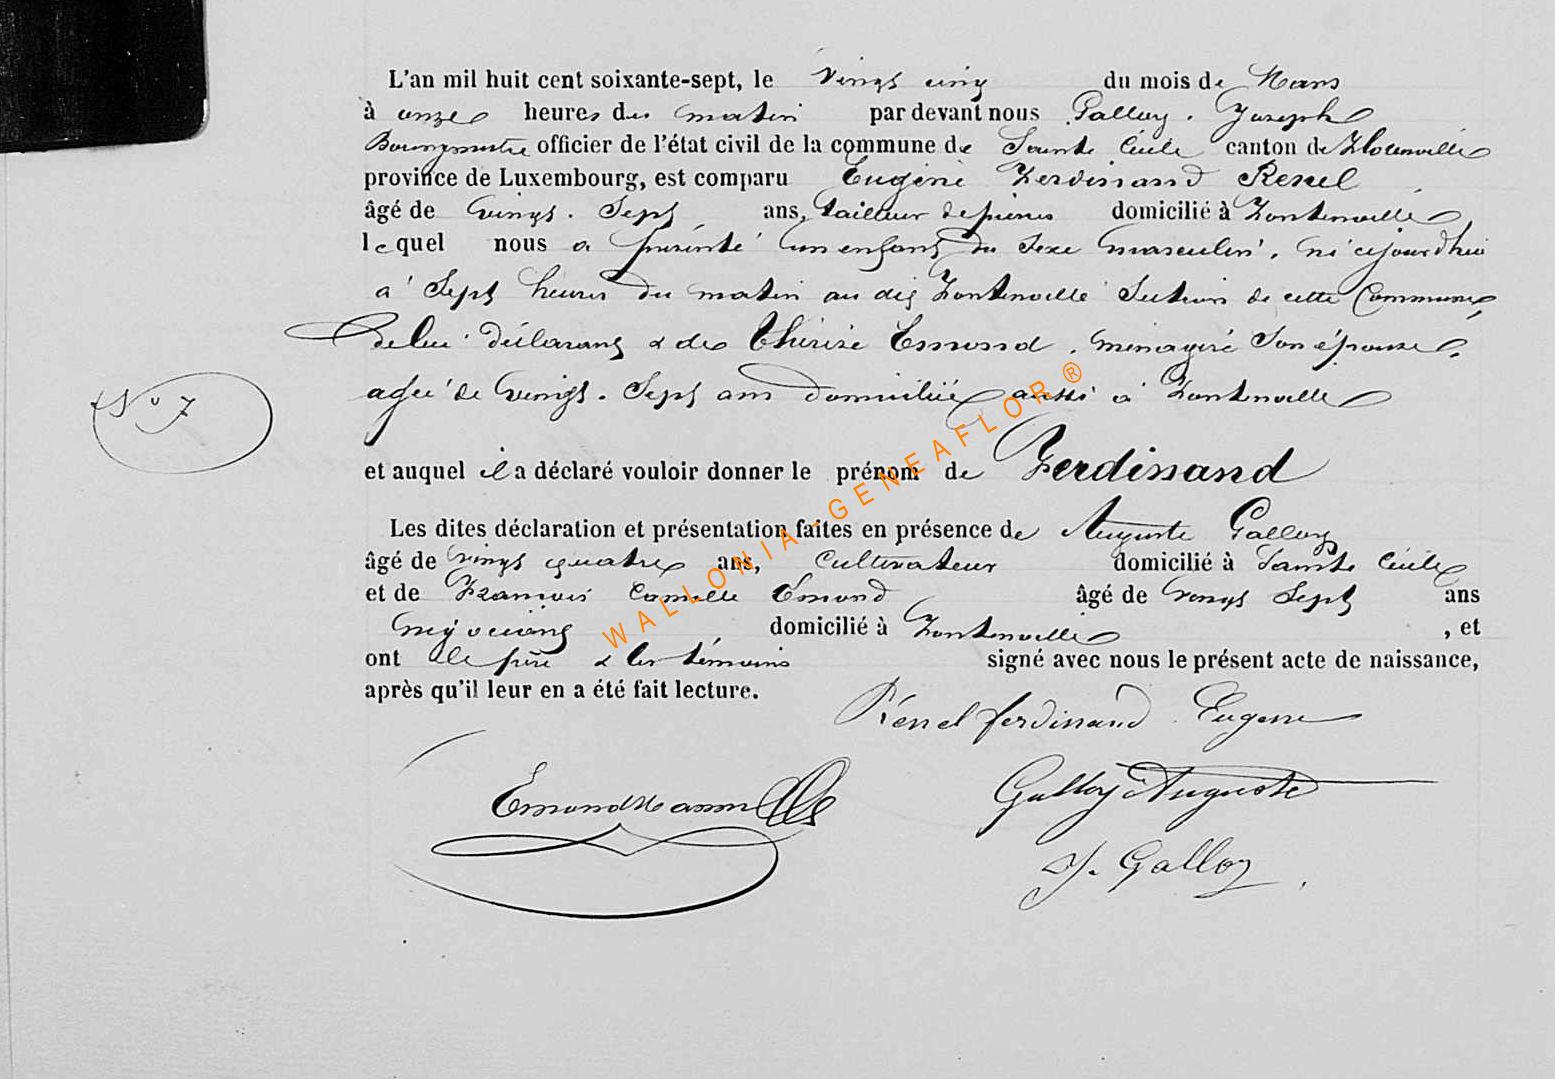 L'an mil huit cent soixante-sept, le vingt cinq du mois de Mars
à onze heures du matin par devant nous Galloy Joseph
Bourgmestre officier de l'état civil de la commune de Sainte Cécile canton de Florenville
province de Luxembourg, est comparu Eugène Ferdinand Renel
âgé de vingt-sept ans, tailleur de pierres domicilié à Fontenoille
lequel nous a présenté un enfant du sexe masculin, né cejourd'hui
à sept heures du matin au dit Fontenoille section de cette commune,
de lui déclarant & de Thérèse Emond, ménagère son épouse,
agée de vingt-sept ans domiciliée aussi à Fontenoille
N° 7
et auquel il a déclaré vouloir donner le prénom de Ferdinand
Les dites déclaration et présentation faites en présence de Auguste Galloy
âgé de vingt quatre ans, cultivateur domicilié à Sainte Cécile
et de François Camille Emond âgé de vingt sept ans
négociant domicilié à Fontenoille, et
ont le père & les témoins signé avec nous le présent acte de naissance,
après qu'il leur en a été fait lecture.
Rénel ferdinand Eugene
Emond
Galloy Auguste
J. Galloy
WALLONIA-GENEAFLOR®